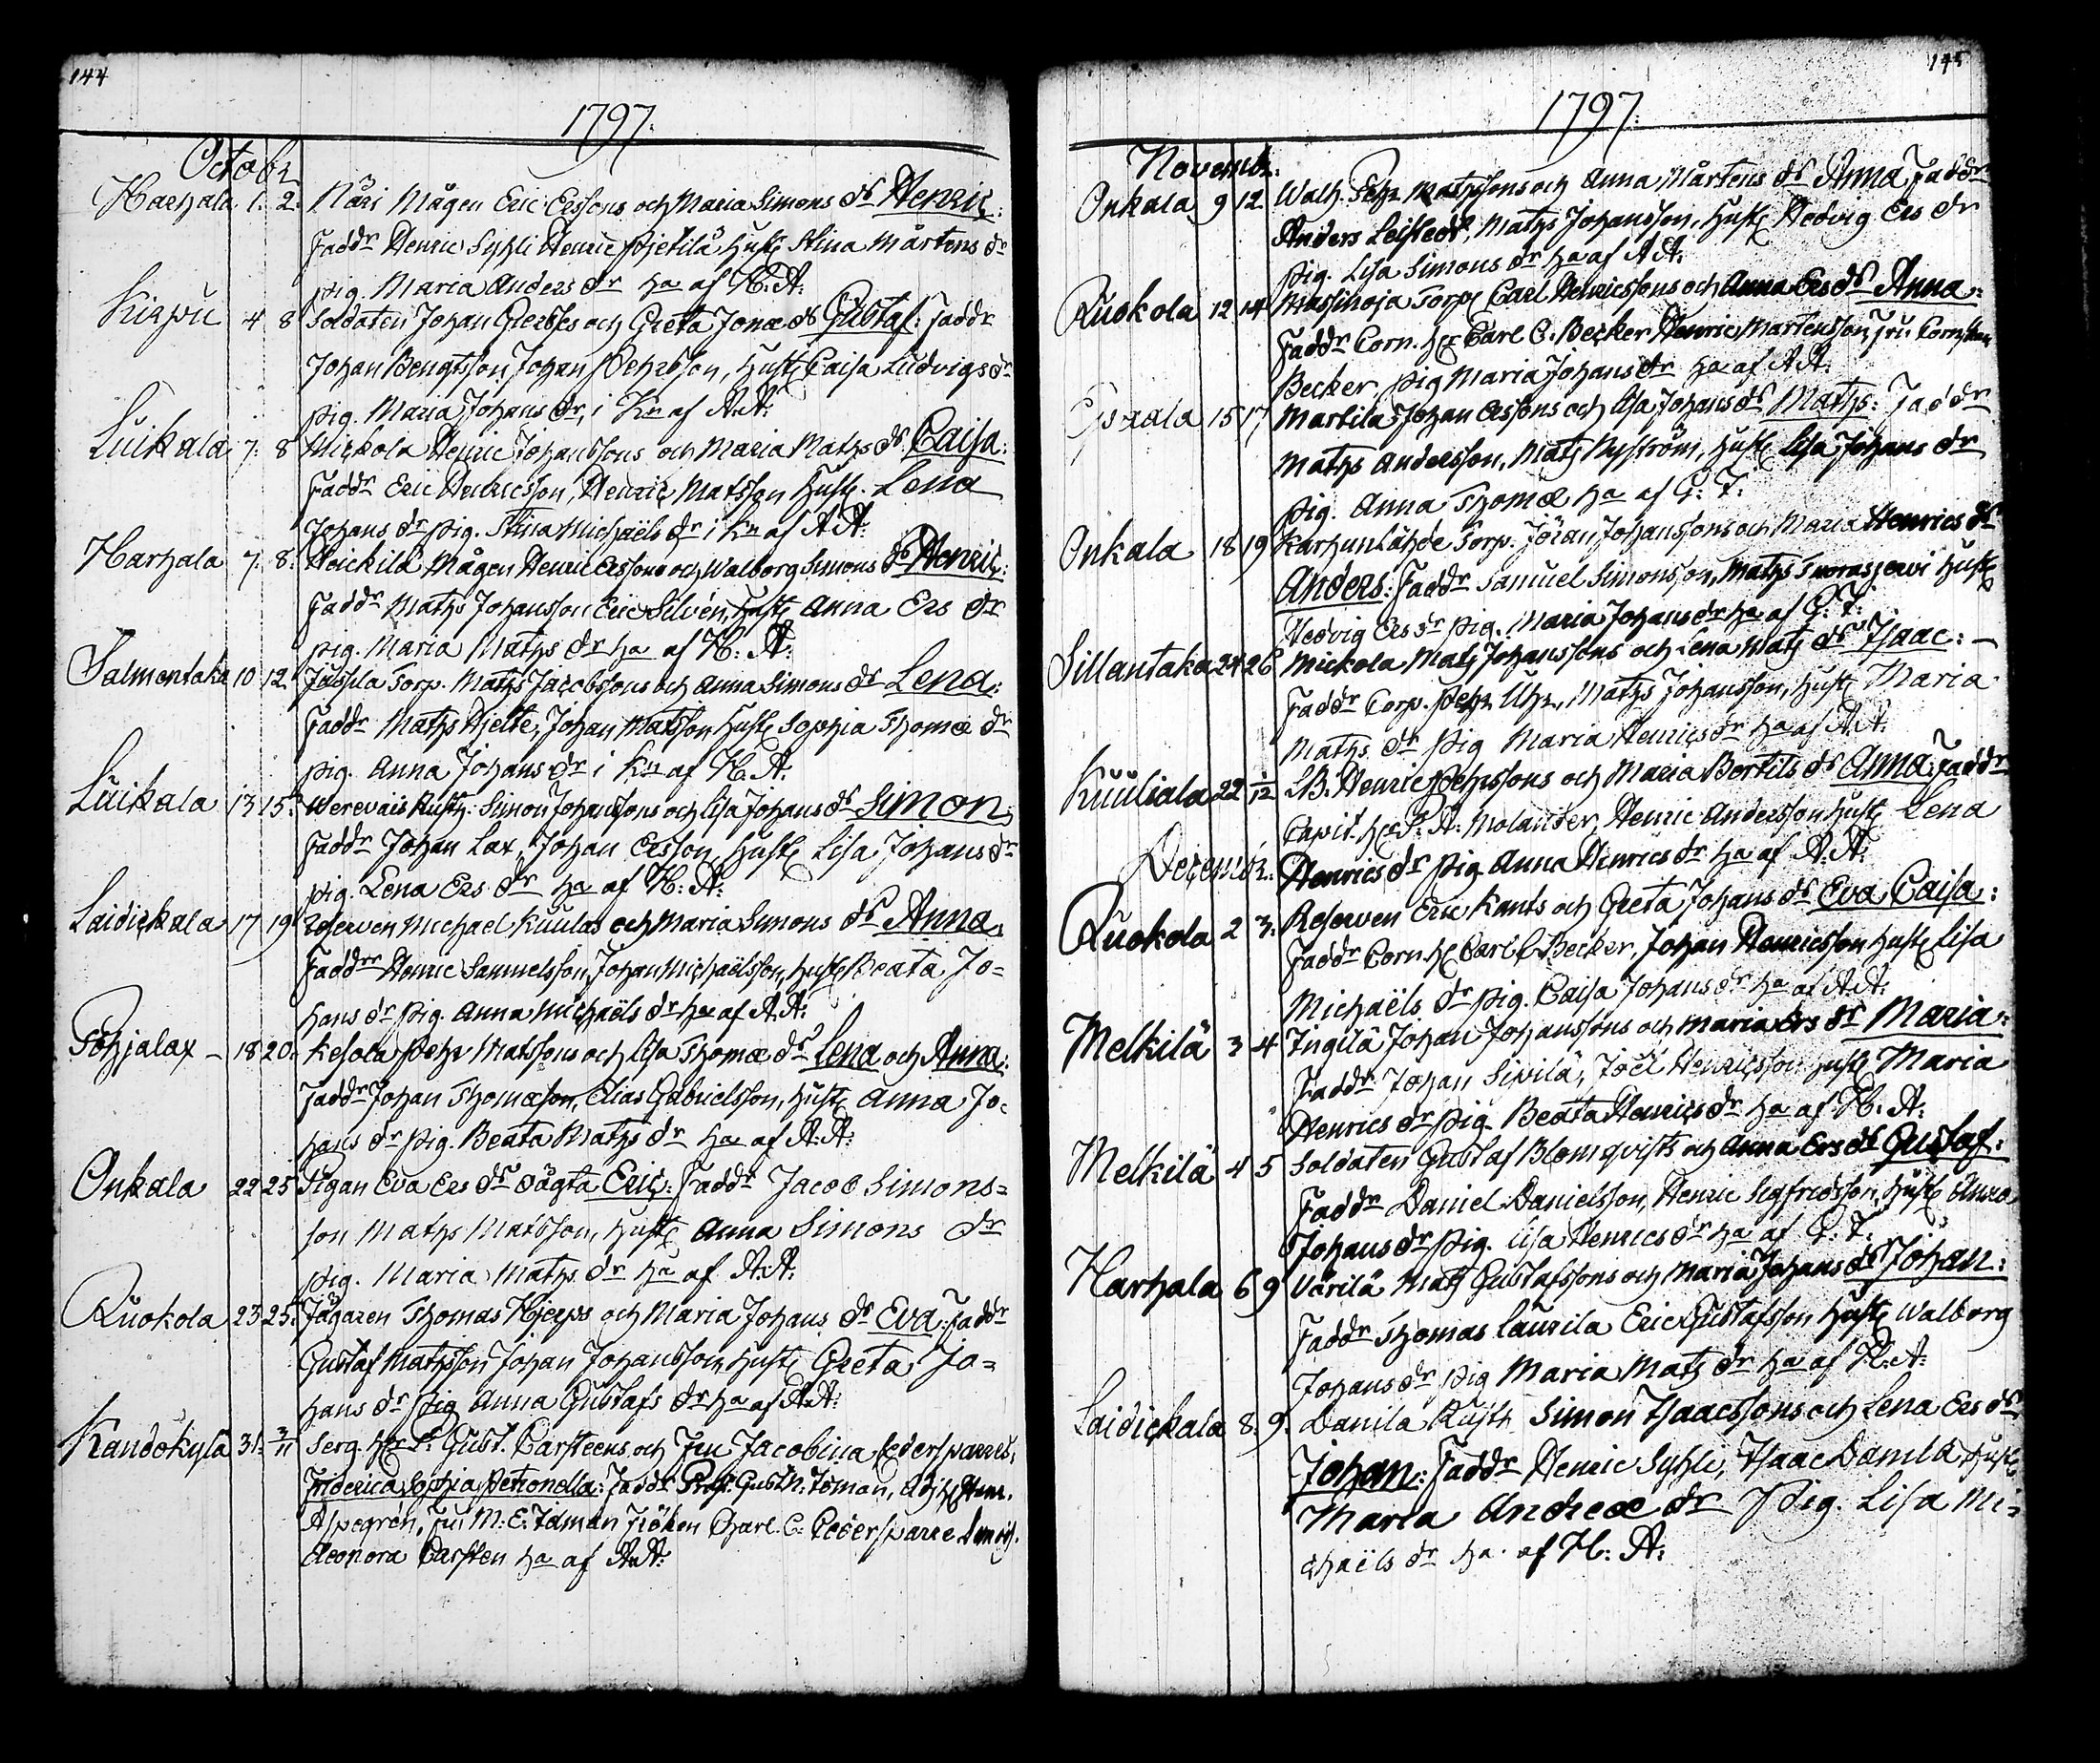 144
1797.
Octobr
Harhala 1. 2. Näri Mågen Eric Erssons och Maria Simons ds Henric:
Faddr Henric Syhli Henric Pietilä Hustr Stina Mårtens dr
pig. Maria Anders dr ha af H. A:
Kirpu 4 8 Soldaten Johan och Greta Jonæ ds Gustaf: Faddr
Johan Bengtsson Johan Pehrsson, Hustr Caisa Ludvigs dr
pig. Maria Johans dr, i Kn af A.A:
Luikala 7. 8 Mickola Henric Johanssons och Maria Maths ds. Caisa:
Faddr Eric Henricsson, Henric Matsson Hustr. Lena
Johans dr pig. Stina Michaëls dr i Kn af A A:
Harhala 7. 8. Heickilä Mågen Henric Erssons och Walborg Simons ds Henric:
Faddr Maths Johansson Eric Silvén, Hustr Anna Ers dr
pig. Maria Maths dr ha af H: A:
Salmentaka 10 12. Jussila Torp. Maths Jacobssons och Anna Simons ds Lena:
Faddr Maths Hjelte, Johan Matsson Hustr Sophia Thomæ dr
pig. Anna Johans dr i Kn af H. A:
Luikala 13 15. Wereväis Rusth. Simon Johanssons och Lisa Johans ds Simon;
Faddr Johan Lax, Johan Ersson, Hustr Lisa Johans dr
pig. Lena Ers dr ha af H: A:
Laidickala 17 19. Reserven Michael Kuulas och Maria Simons ds Anna.
Faddrr Henric Samuelsson, Johan Michaëlsson, Hustr Beata Jo=
hans dr pig. Anna Michaëls dr ha af A.A:
Pohjalax – 18 20. Kesola Pehr Matssons och Lisa Thomæ ds Lena och Anna:
Faddr Johan Thomæson, Elias Gabrielsson, Hustr Anna Jo=
hans dr pig. Beata Maths dr ha af A: A:
Onkala 22 25 Pigan Eva Ers ds oägta Eric: Faddr Jacob Simons=
son Maths Matsson, Hustr Anna Simons dr
pig. Maria Maths dr ha af A:A:
Ruokola 23 25. Jägaren Thomas Hjerps och Maria Johans ds Eva: Faddr
Gustaf Mathsson Johan Johansson Hustr Greta Jo=
hans dr pig Anna Gustafs dr ha af A.A:
Kandokylä 31. 3/11 Serg. Hr Gust. Carsteens och Fru Jacobina Cederspärres,
Friderica Sophia Petronella: Faddr Prof. Gust. Idman,
Aspegrén, Fru M: E: Idman Fröken Charl. C: Cedersparre
Eleonora Carsten ha af A.A:
145
1797.
Novembr:
Onkala 9 12. Walh. Pehr Mathssons och Anna Mårtens ds Anna Faddr
Anders Leistedt, Maths Johansson, Hustr Hedvig Ers dr
pig. Lisa Simons dr ha af A A:
Ruokola 12 14 Torp. Carl Henricssons och Anna Ers ds Anna:
Faddr Corn. Hr Carl C. Becker Henric Mårtensson Fru
Becker pig Maria Johans dr ha af A A:
15 17 Martila Johan Erssons och Lisa Johans ds Maths: Faddr
Maths Andersson, Mats Nyström, Hustr Lisa Johans dr
pig. Anna Thomæ ha af G: T.
Onkala 18 19 Karhunlähde Torp. Jöran Johanssons och Maria Henrics ds
Anders: Faddr Samuel Simonsson, Maths Hustr
Hedvig Ers dr pig. Maria Johans dr ha af G: T.
Sillantaka 24 26 Mickola Mats Johanssons och Lena Mats ds Isaac: –
Faddr Corp. Pehr Uhr, Maths Johansson, Hustr Maria
Maths dr pig Maria Henrics dr ha af A: A:
Kuuliala 22 1/12 SB. Henric Pehrssons och Maria Bertils ds Anna: Faddr
Capit. Hr A: Molander, Henric Andersson Hustr Lena
Henrics dr pig Anna Henrics dr ha af A: A:
Decembr:
Ruokola 2 3. Reserven Eric Kants och Greta Johans ds Eva Caisa:
Faddr Corn Hr Carl C. Becker, Johan Henricsson Hustr Lisa
Michaëls dr pig. Caisa Johans dr ha af A A:
Melkilä 3 4 Ingilä Johan Johanssons och Maria Ers dr Maria:
Faddr Johan Sipilä, Joël Henricsson Hustr Maria
Henrics dr pig Beata Henrics dr ha af H. A:
Melkilä 4 5 Soldaten Gustaf Blomqvists och Anna Ers ds Gustaf:
Faddr Daniel Danielsson, Henric Sigfredsson, Hustr Anna
Johans dr pig. Lisa Henrics dr ha af G: T.
Harhala 6 9 Värilä Mats Gustafssons och Maria Johans ds Johan:
Faddr Thomas Laurila Eric Gustafsson Hustr Walborg
Johans dr pig Maria Mats dr ha af H.A:
Laidickala 8. 9. Danila Rusth Simon Isaacssons och Lena Ers ds
Johan: Faddr Henric Syhli, Isaac Danila Hustr
Maria Andreæ dr pig. Lisa Mi=
chaëls dr ha. af H: A: